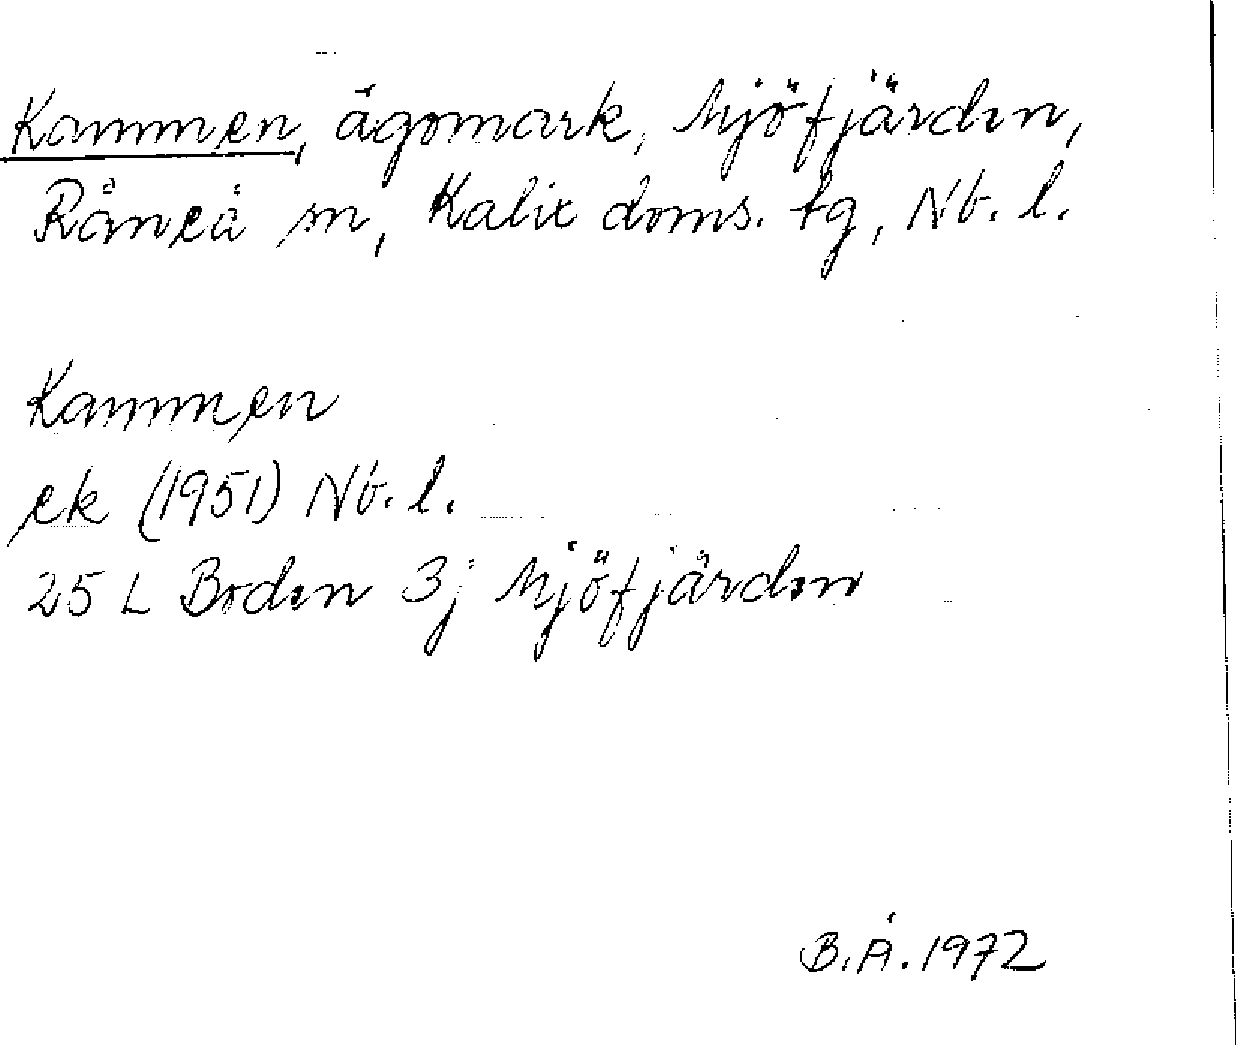 Kammen, ägomark, Mjöfjärden,
Råneå sn, Kalix doms. tg, Nb. l.
Kammen
ek (1951) Nb. l.
25 L Boden 3j Mjöfjärden
B.Å. 1972